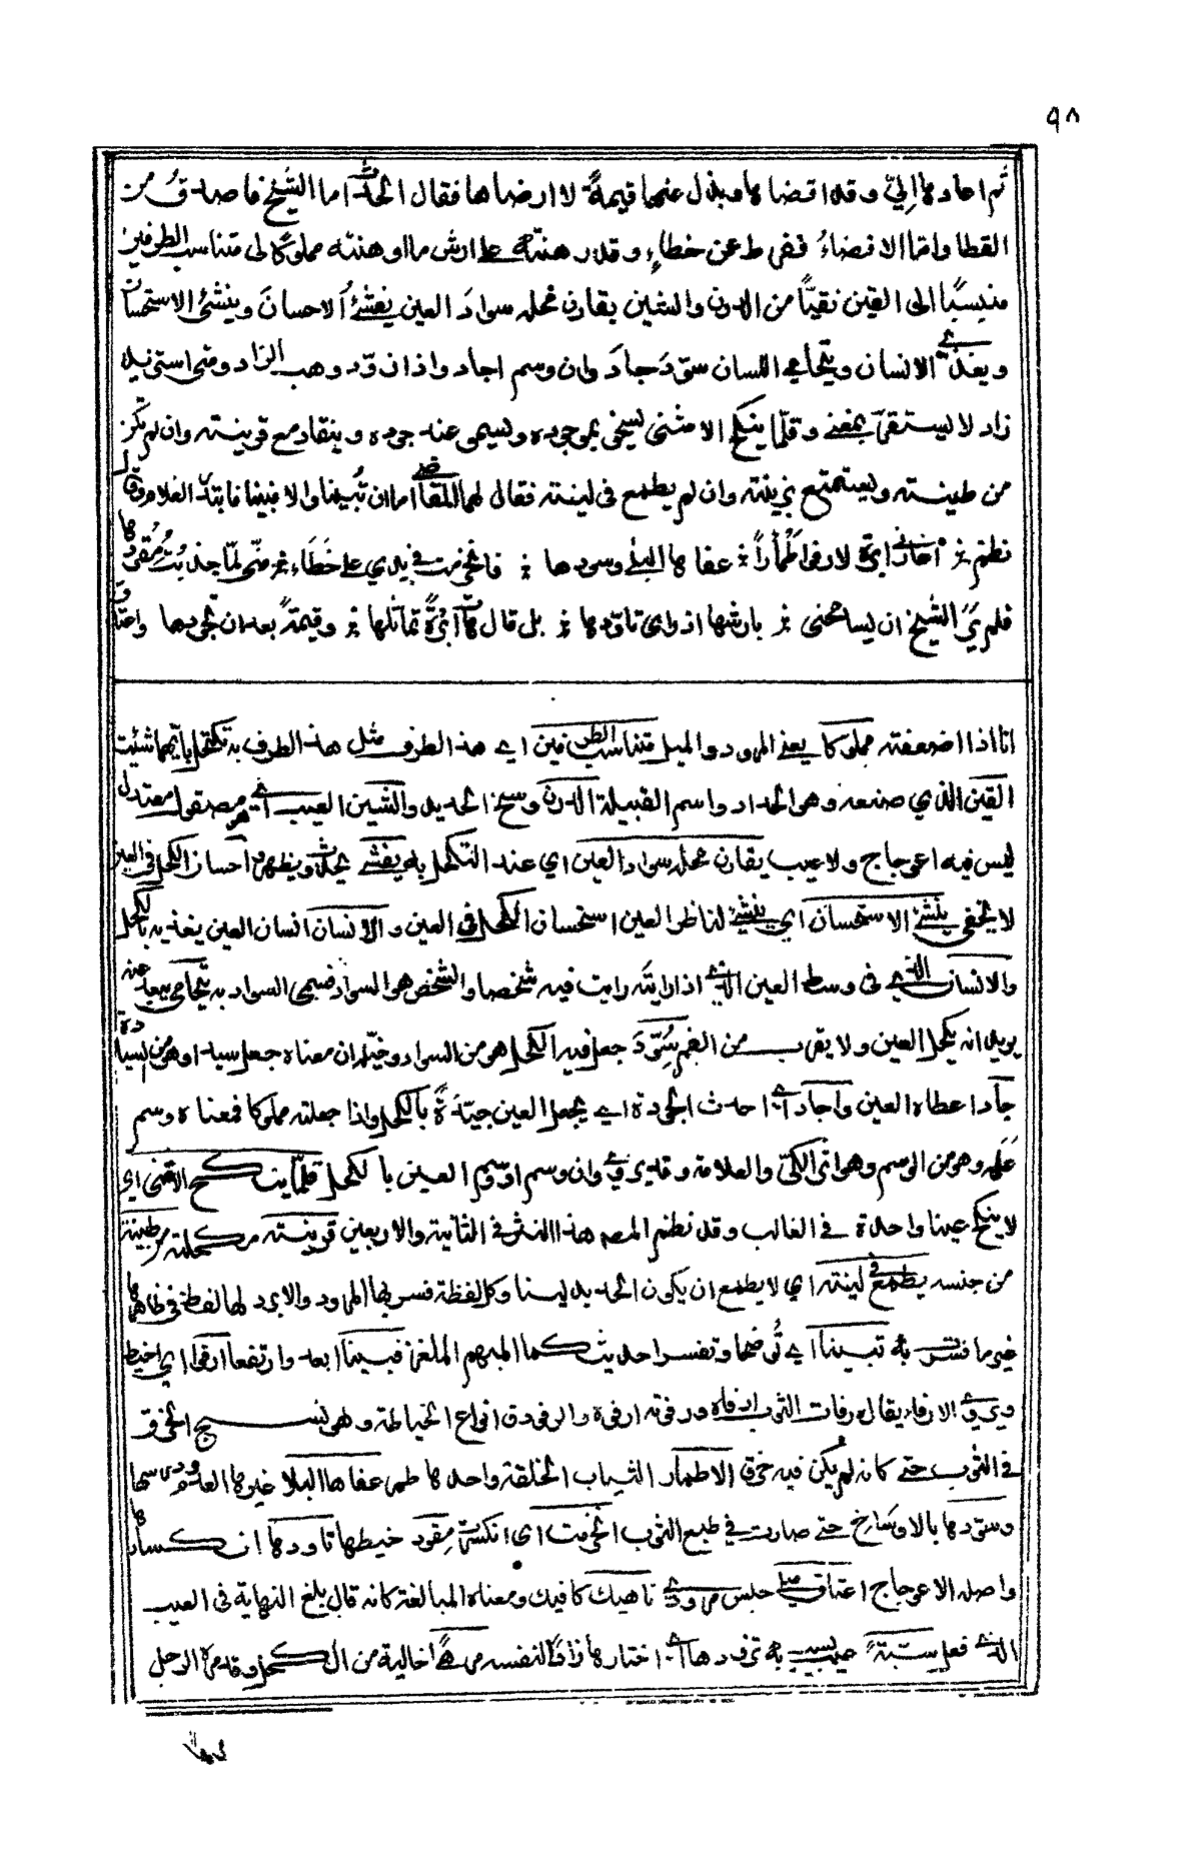 ٩٨
ثم اعادها اليّ وقد افضاها وبذل عنها قيمةً لا ارضاها فقال الحدث اما الشيخ فاصدق من
القطا واما الافضاءُ ففرط عن خطاءٍ وقد رهنته على ارش ما اوهنته مملوكا لى متناسب الطرفين
منتسبًا الى القين نقيّا من الدرن والشين يقارن محله سوادَ العين يفشئ الاحسانَ وينشئ الاستحسان
ويغذى الانسان ويتحامى اللسان ان سوّدَ جادَ وان وسم اجاد واذا زوّد وهب الزاد ومتى استزيد
زاد لا يستقرّ بمغنى وقلّما ينكح الا مثنى يسخى بموجوده ويسمو عند جوده وينقاد مع قرينته وان لم تكن
من طينته ويستمتع بزينته وان لم يطمع فى لينته فقال لهما القاضى اما ان تُبينا والا فبينا فابتدر الغلام وقال
نظم اعارنى ابرة لارفو اطمارًا عفاها البلى وسودها فانخرمت فى يدي على خطاء منّى لمّا جذبتُ مِقودها
فلم يرَ الشيخ ان يسامحنى بارشها اذ راى تاودها بل قال هات ابرةً تماثلها او قيمةً بعد ان تجودها واعتاق
انا اذا اضعفته مملوكا يعنى المرود والميل متناسب الطرفين اى هذا الطرف مثل هذا الطرف به تكتحل بايهما شئت
القين الذي صنعه وهو الحداد واسم القبيلة الدرن وسخ الحديد والشين العيب اى هو مصقول معتدل
ليس فيه اعوجاج ولا عيب يقارن محله سواد العين اي عند التكحل به يفشى يحدث ويظهر احسان الكحل فى العين
لا يخفى ينشئ الاستحسان اي ينشئ لناظر العين استحسان الكحل فى العين والانسان انسان العين يغذيه بالكحل
والانسان الذى فى وسط العين الذى اذا رايته رايت فيه شخصا والشخص هو السواد فسمى السواد به يتحامى يبعد عنه
يريد انه يكحل العين ولا يقرب من الفم سُوّدَ جعل فيه الكحل هو من السواد وخيّل ان معناه جعل سيدا وهو من السيادة
جاد اعطاه العين واجاد اى احدث الجودة اى يجعل العين جيّدةً بالكحل واذا جعلته مملوكا فمعناه وسم
عَلّم وهو من الوسم وهو اثر الكىّ والعلامة وقد يروى وان وسم اى وسم العين بالكحل قلّما ينكح الا مثنى اي
لا ينكح عينا واحدة فى الغالب وقد نظم المصـ هذا النثر فى الثانية والاربعين قرينته مكحلته من طينته
من جنسه يطمع فى لينته اي لا يطمع ان يكون الحديد لينا وكل لفظة فسر بها المرود والابرة لها لفظ فى ظاهرها
غير ما فسّر به تبينا اى تُوضحا وتفسرا حديثكما المبهم الملغز فبينا ابعدا وارتفعا ارفو اي اخيط
ويروى الارفاء يقال رفات الثوب ارفاه ورفوته ارفوه والرفو دق انواع الخياطة وهو نسج الخرق
فى الثوب حتى كانه لم يكن فيه خرق الاطمار الثياب الخلقة واحدها طمر عفاها البلا غيرها العفو درسها
وسوّدها بالاوساخ حتى صارت فى طبع الثوب انخرمت اي انكسرت مِقود خيطها تاودها انكسارها
واصله الاعوجاج اعتاق ميلى حبس مرودى ناهيك كافيك ومعناه المبالغة كانه قال بلغ النهاية فى العيب
الذى فعل سبّةً عيب يسب به تزودها اى اختارها زادًا لنفسه مرهى خالية من الكحل وقد مره الرجل